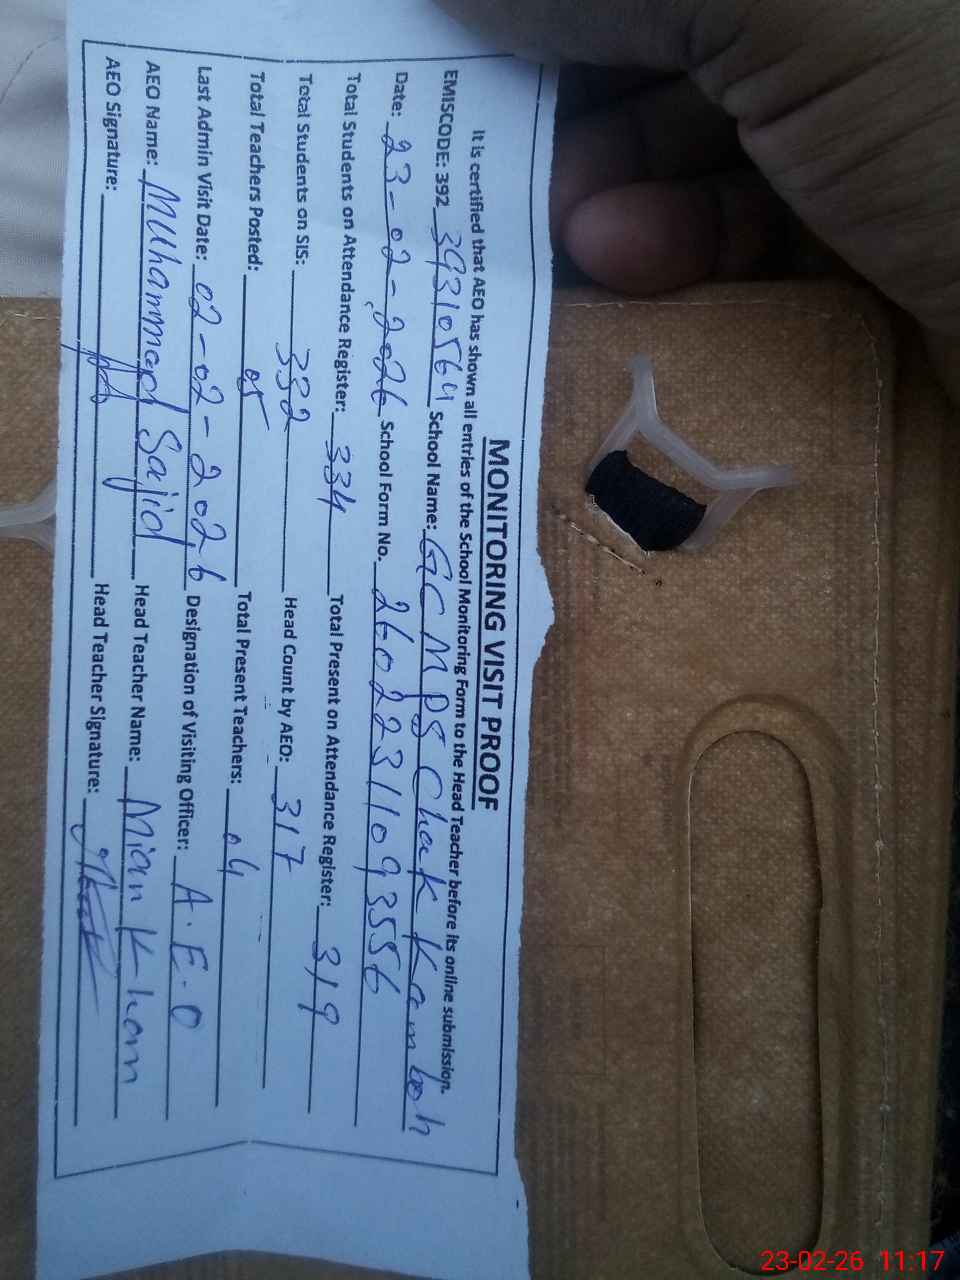 MONITORING VISIT PROOF
It is certified that AEO has shown all entries of the School Monitoring Form to the Head Teacher before its online submission.
EMISCODE: 392 39310564 School Name: GCMPS Chak Kamboh
Date: 23-02-2026 School Form No. 26022311093556
Total Students on Attendance Register: 334 Total Present on Attendance Register: 319
Total Students on SIS: 332 Head Count by AEO: 317
Total Teachers Posted: 05 Total Present Teachers: 04
Last Admin Visit Date: 02-02-2026 Designation of Visiting Officer: A.E.O
AEO Name: Muhammad Sajid Head Teacher Name: Mian Khan
AEO Signature: Head Teacher Signature:
23-02-26 11:17